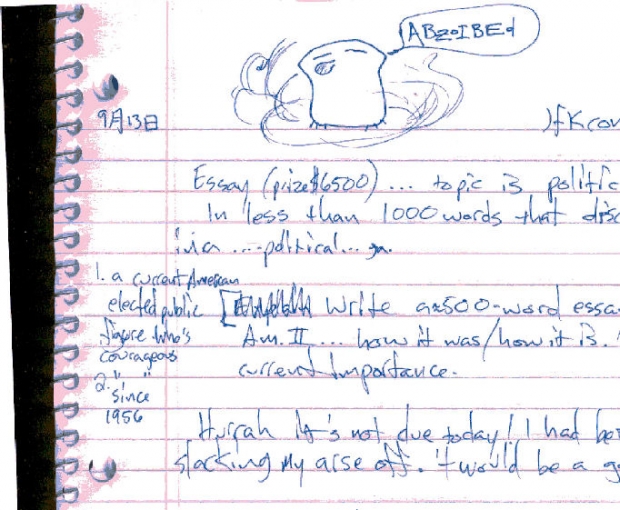 ABzoIBEd
9月13日
JfKcou
Essay (prize$6500) ... topic is politic
In less than 1000 words that disc
in a ....political...
1. a current American
elected public
figure who's
courageous
2. " "
since
1956
Write a 500-word essa
Am. II ... how it was/how it is.
current importance.
Hurrah It's not due today! I had be
slacking my arse off. 'twould be a g